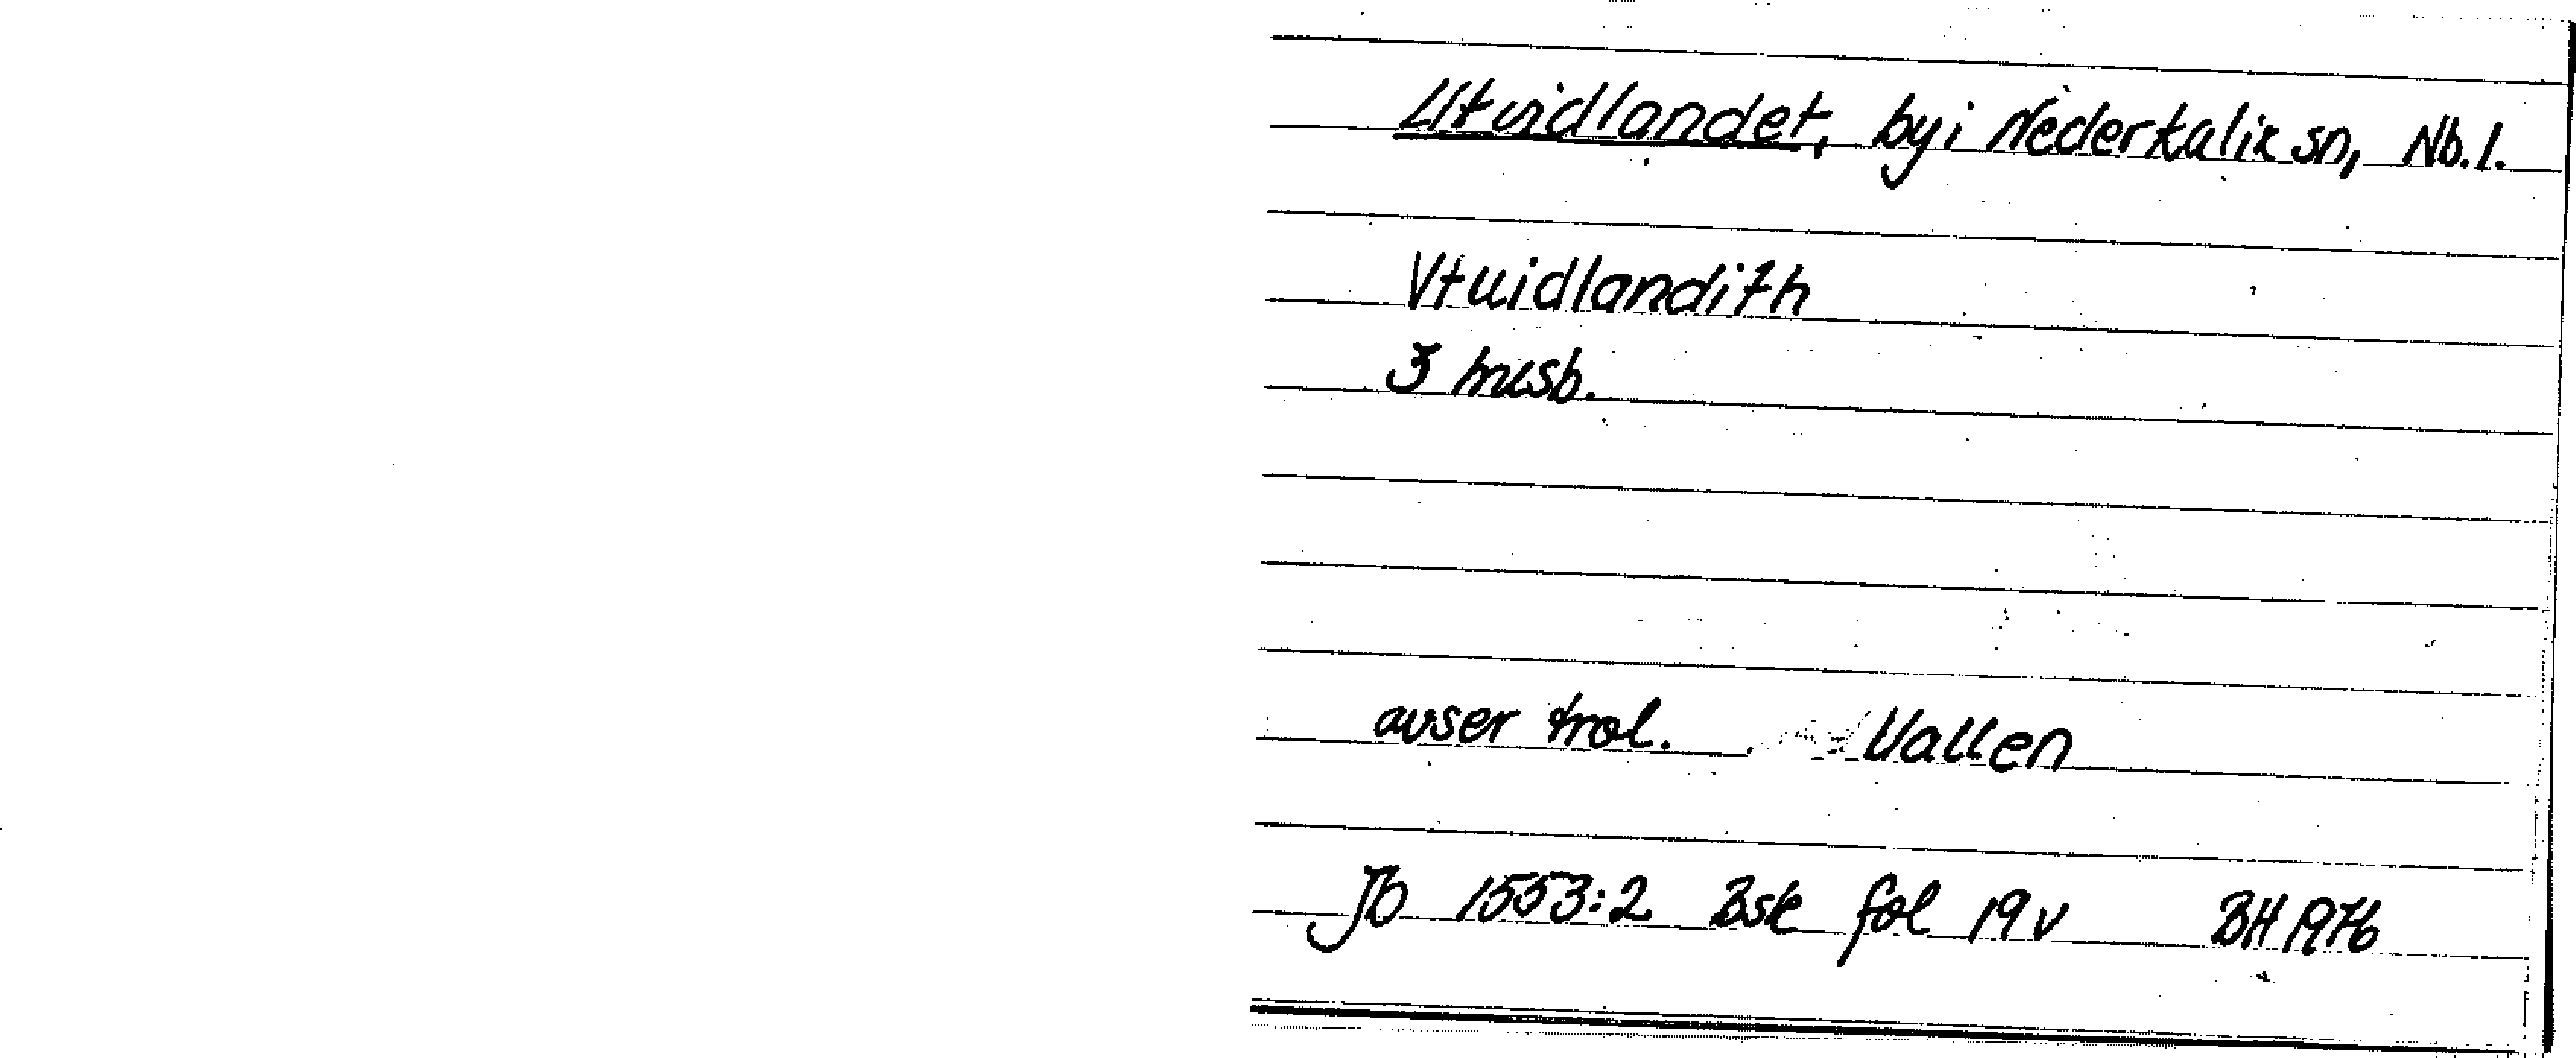 Utvidlandet, by i Nederkalix sn, Nb.l.
Vtuidlandith
3 husb.
avser trol. Vallen
Jb 1553:2 Bsk fol 19 v BH 1976